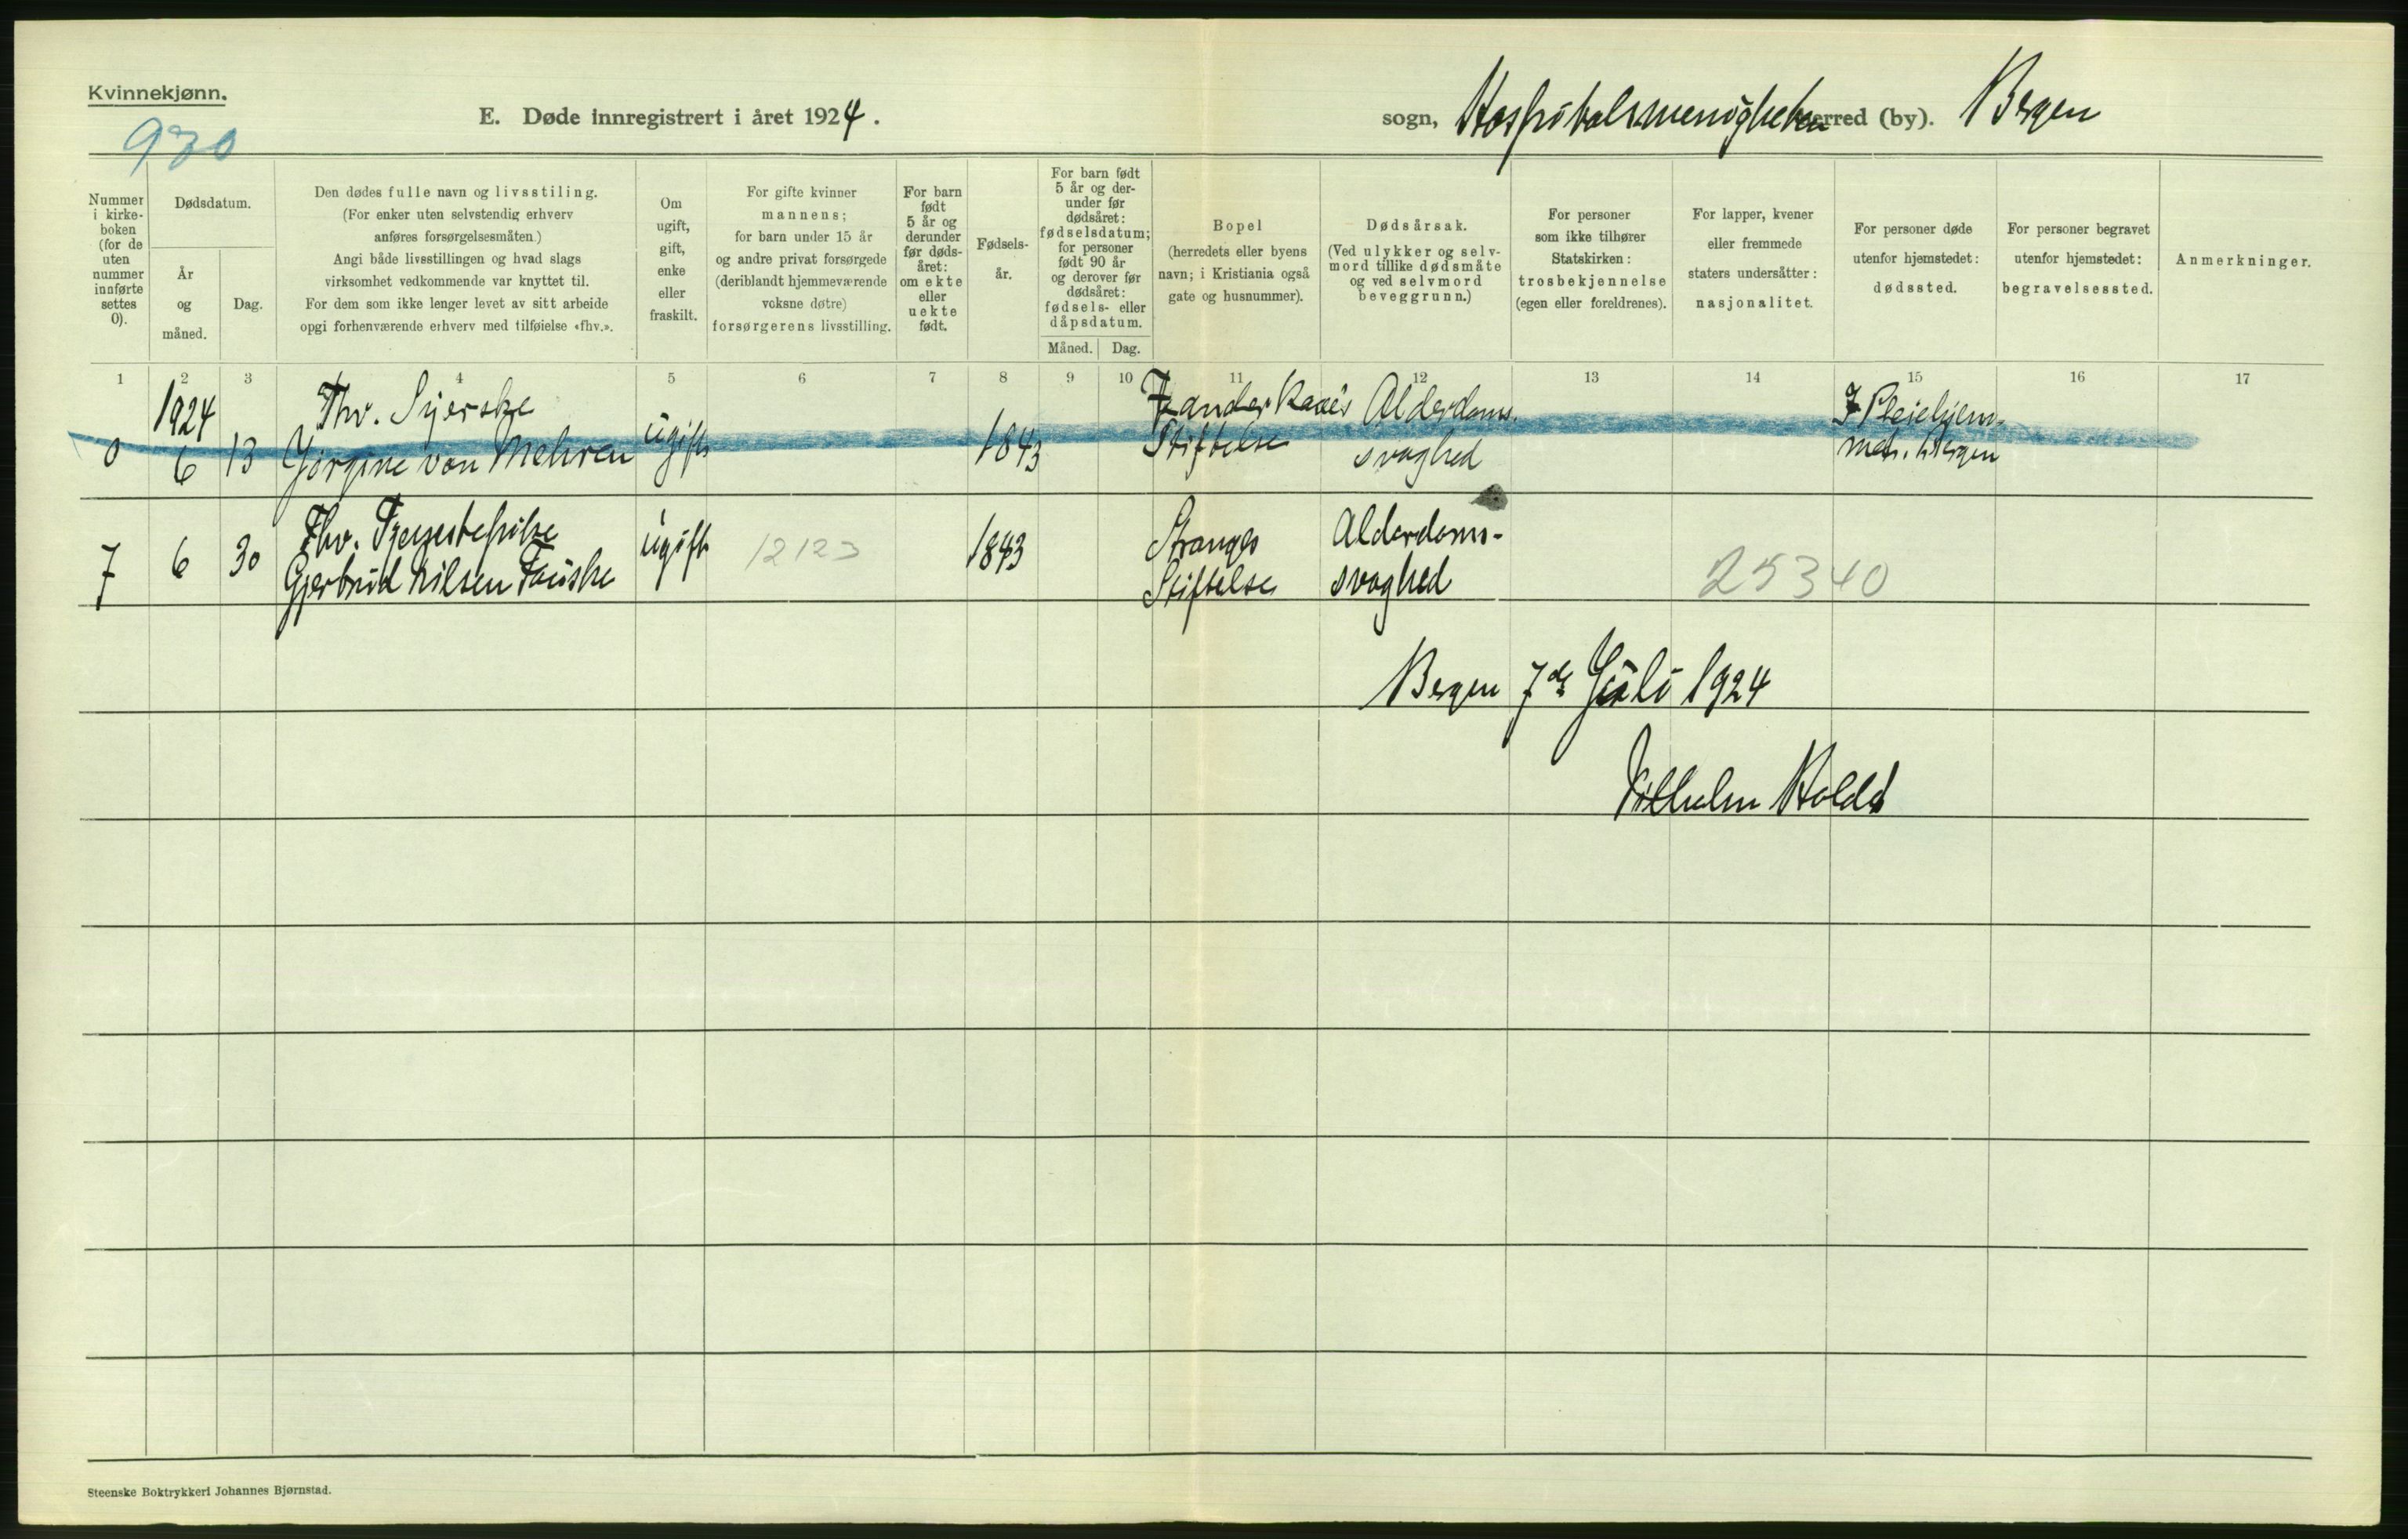 Kvinnekjønn.
930
E. Døde innregistrert i året 1924.
sogn, Hospitalsmenigheten herred (by). Bergen
Nummer i kirke- boken (for de uten nummer innførte settes 0).
Dødsdatum.
År og måned.
Dag.
Den dødes fulle navn og livsstiling.
(For enker uten selvstendig erhverv
anføres forsørgelsesmåten.)
Angi både livsstillingen og hvad slags
virksomhet vedkommende var knyttet til.
For dem som ikke lenger levet av sitt arbeide
opgi forhenværende erhverv med tilføielse «fhv.».
Om ugift, gift, enke eller fraskilt.
For gifte kvinner
mannens;
for barn under 15 år
og andre privat forsørgede
(deriblandt hjemmeværende
voksne døtre)
forsørgerens livsstilling.
For barn født 5 år og derunder før døds- året: om ekte eller uekte født.
Fødsels- år.
For barn født 5 år og der- under før dødsåret: fødselsdatum; for personer født 90 år og derover før dødsåret: fødsels- eller dåpsdatum.
Måned.
Dag.
Bopel
(herredets eller byens
navn; i Kristiania også
gate og husnummer).
Dødsårsak.
(Ved ulykker og selv-
mord tillike dødsmåte
og ved selvmord
beveggrunn.)
For personer
som ikke tilhører
Statskirken:
trosbekjennelse
(egen eller foreldrenes).
For lapper, kvener
eller fremmede
staters undersåtter:
nasjonalitet.
For personer døde
utenfor hjemstedet:
dødssted.
For personer begravet
utenfor hjemstedet:
begravelsessted.
Anmerkninger.
1 2 3 4 5 6 7 8 9 10 11 12 13 14 15 16 17
1924 Fhv. Syerske Zander Kaaes Alderdoms- Pleiehjem-
0 6 13 Jörgine von Mehren ugift 1843 Stiftelse svaghed Bergen
Fhv. Tjenestepike Stranges Alderdoms-
7 6 30 Gjertrud Nilsen Fauske ugift 12123 1843 Stiftelse svaghed 25340
Bergen 7de Juli 1924
Vilhelm Koldt
Steenske Boktrykkeri Johannes Bjørnstad.